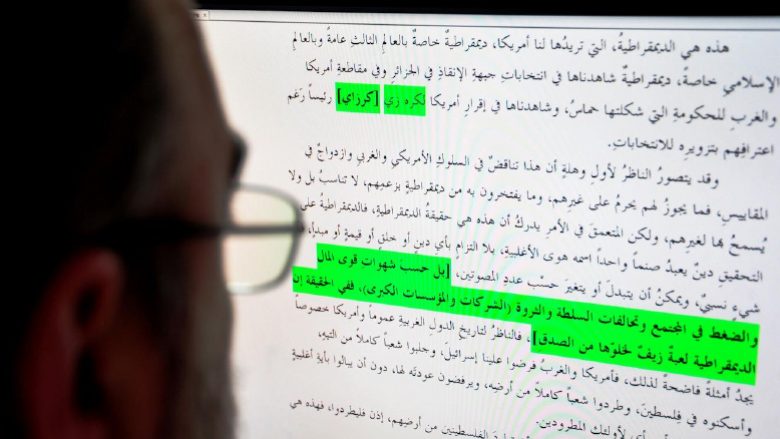 هذه هي الديمقراطيةُ، التي تريدُها لنا أمريكا، ديمقراطيةٌ خاصةٌ بالعالمِ الثالثِ عامةً وبالعالمِ
الإسلاميِ خاصةً، ديمقراطيةٌ شاهدناها في انتخاباتِ جبهةِ الإنقاذِ في الجزائرِ وفي مقاطعةِ أمريكا
والغربِ للحكومةِ التي شكلتها حماسُ، وشاهدناها في إقرارِ أمريكا لكره زي [كرزاي] رئيساً رَغم
اعترافِهم بتزويرِه للانتخاباتِ.
وقد يتصورُ الناظرُ لأولِ وهلةٍ أن هذا تناقضٌ في السلوكِ الأمريكيِ والغربيِ وازدواجٌ في
المقاييسِ، فما يجوزُ لهم يحرمُ على غيرِهم، وما يفتخرون به من ديمقراطيةٍ بزعمِهم، لا تناسبُ بل ولا
يُسمحُ بها لغيرِهم، ولكن المتعمقَ في الأمرِ يدركُ أن هذه هي حقيقةُ الديمقراطيةِ، فالديمقراطيةُ على
التحقيقِ دينٌ يعبدُ صنماً واحداً اسمه هوى الأغلبيةِ، بلا التزامٍ بأي دينٍ أو خلقٍ أو قيمةٍ أو مبدإٍ،
شيءٍ نسبيٌ، ويمكنُ أن يتبدلَ أو يتغيرَ حسْب عددِ المصوتين، [بل حسبَ شهواتِ قوى المالِ
والضغط في المجتمع وتحالفات السلطة والثروة (الشركات والمؤسسات الكبرى)، ففي الحقيقة إن
الديمقراطية لعبةُ زيفٌ لخلوّها من الصدق]، فالناظرُ لتاريخِ الدولِ الغربيةِ عموماً وأمريكا خصوصاً
يجدُ أمثلةً فاضحةً لذلك، فأمريكا والغربُ فرضوا علينا إسرائيلَ، وجلبوا شعباً كاملاً من التيهِ،
وأسكنوه في فِلسطينَ، وطردوا شعباً كاملاً من أرضِه، ويرفضون عودتَه لها، دون أن يبالوا بأيةِ أغلبيةٍ
لأولئك المطرودين.
الفلسطينين من أرضِهم، إذن فليطردوا، فهذه هي